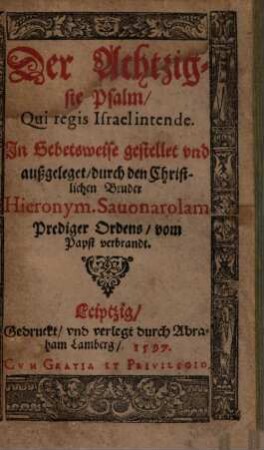 Der Achtzig-
ste Psalm/
Qui regis Israel intende.
In Gebetsweise gestellet vnd
außgeleget/durch den Christ-
lichen Bruder
Hieronym. Sauonarolam
Prediger Ordens/vom
Papst verbrandt.
Leiptzig/
Gedruckt/vnd verlegt durch Abra-
ham Lamberg/. 1597.
CVM GRATIA ET PRIVILEGIO.